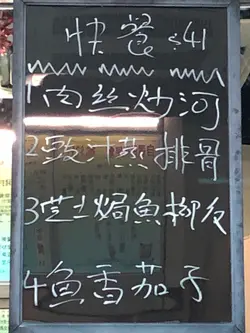 快餐 $41
1肉丝炒河
2豉汁蒸排骨
3芝士焗魚柳反
4鱼香茄子